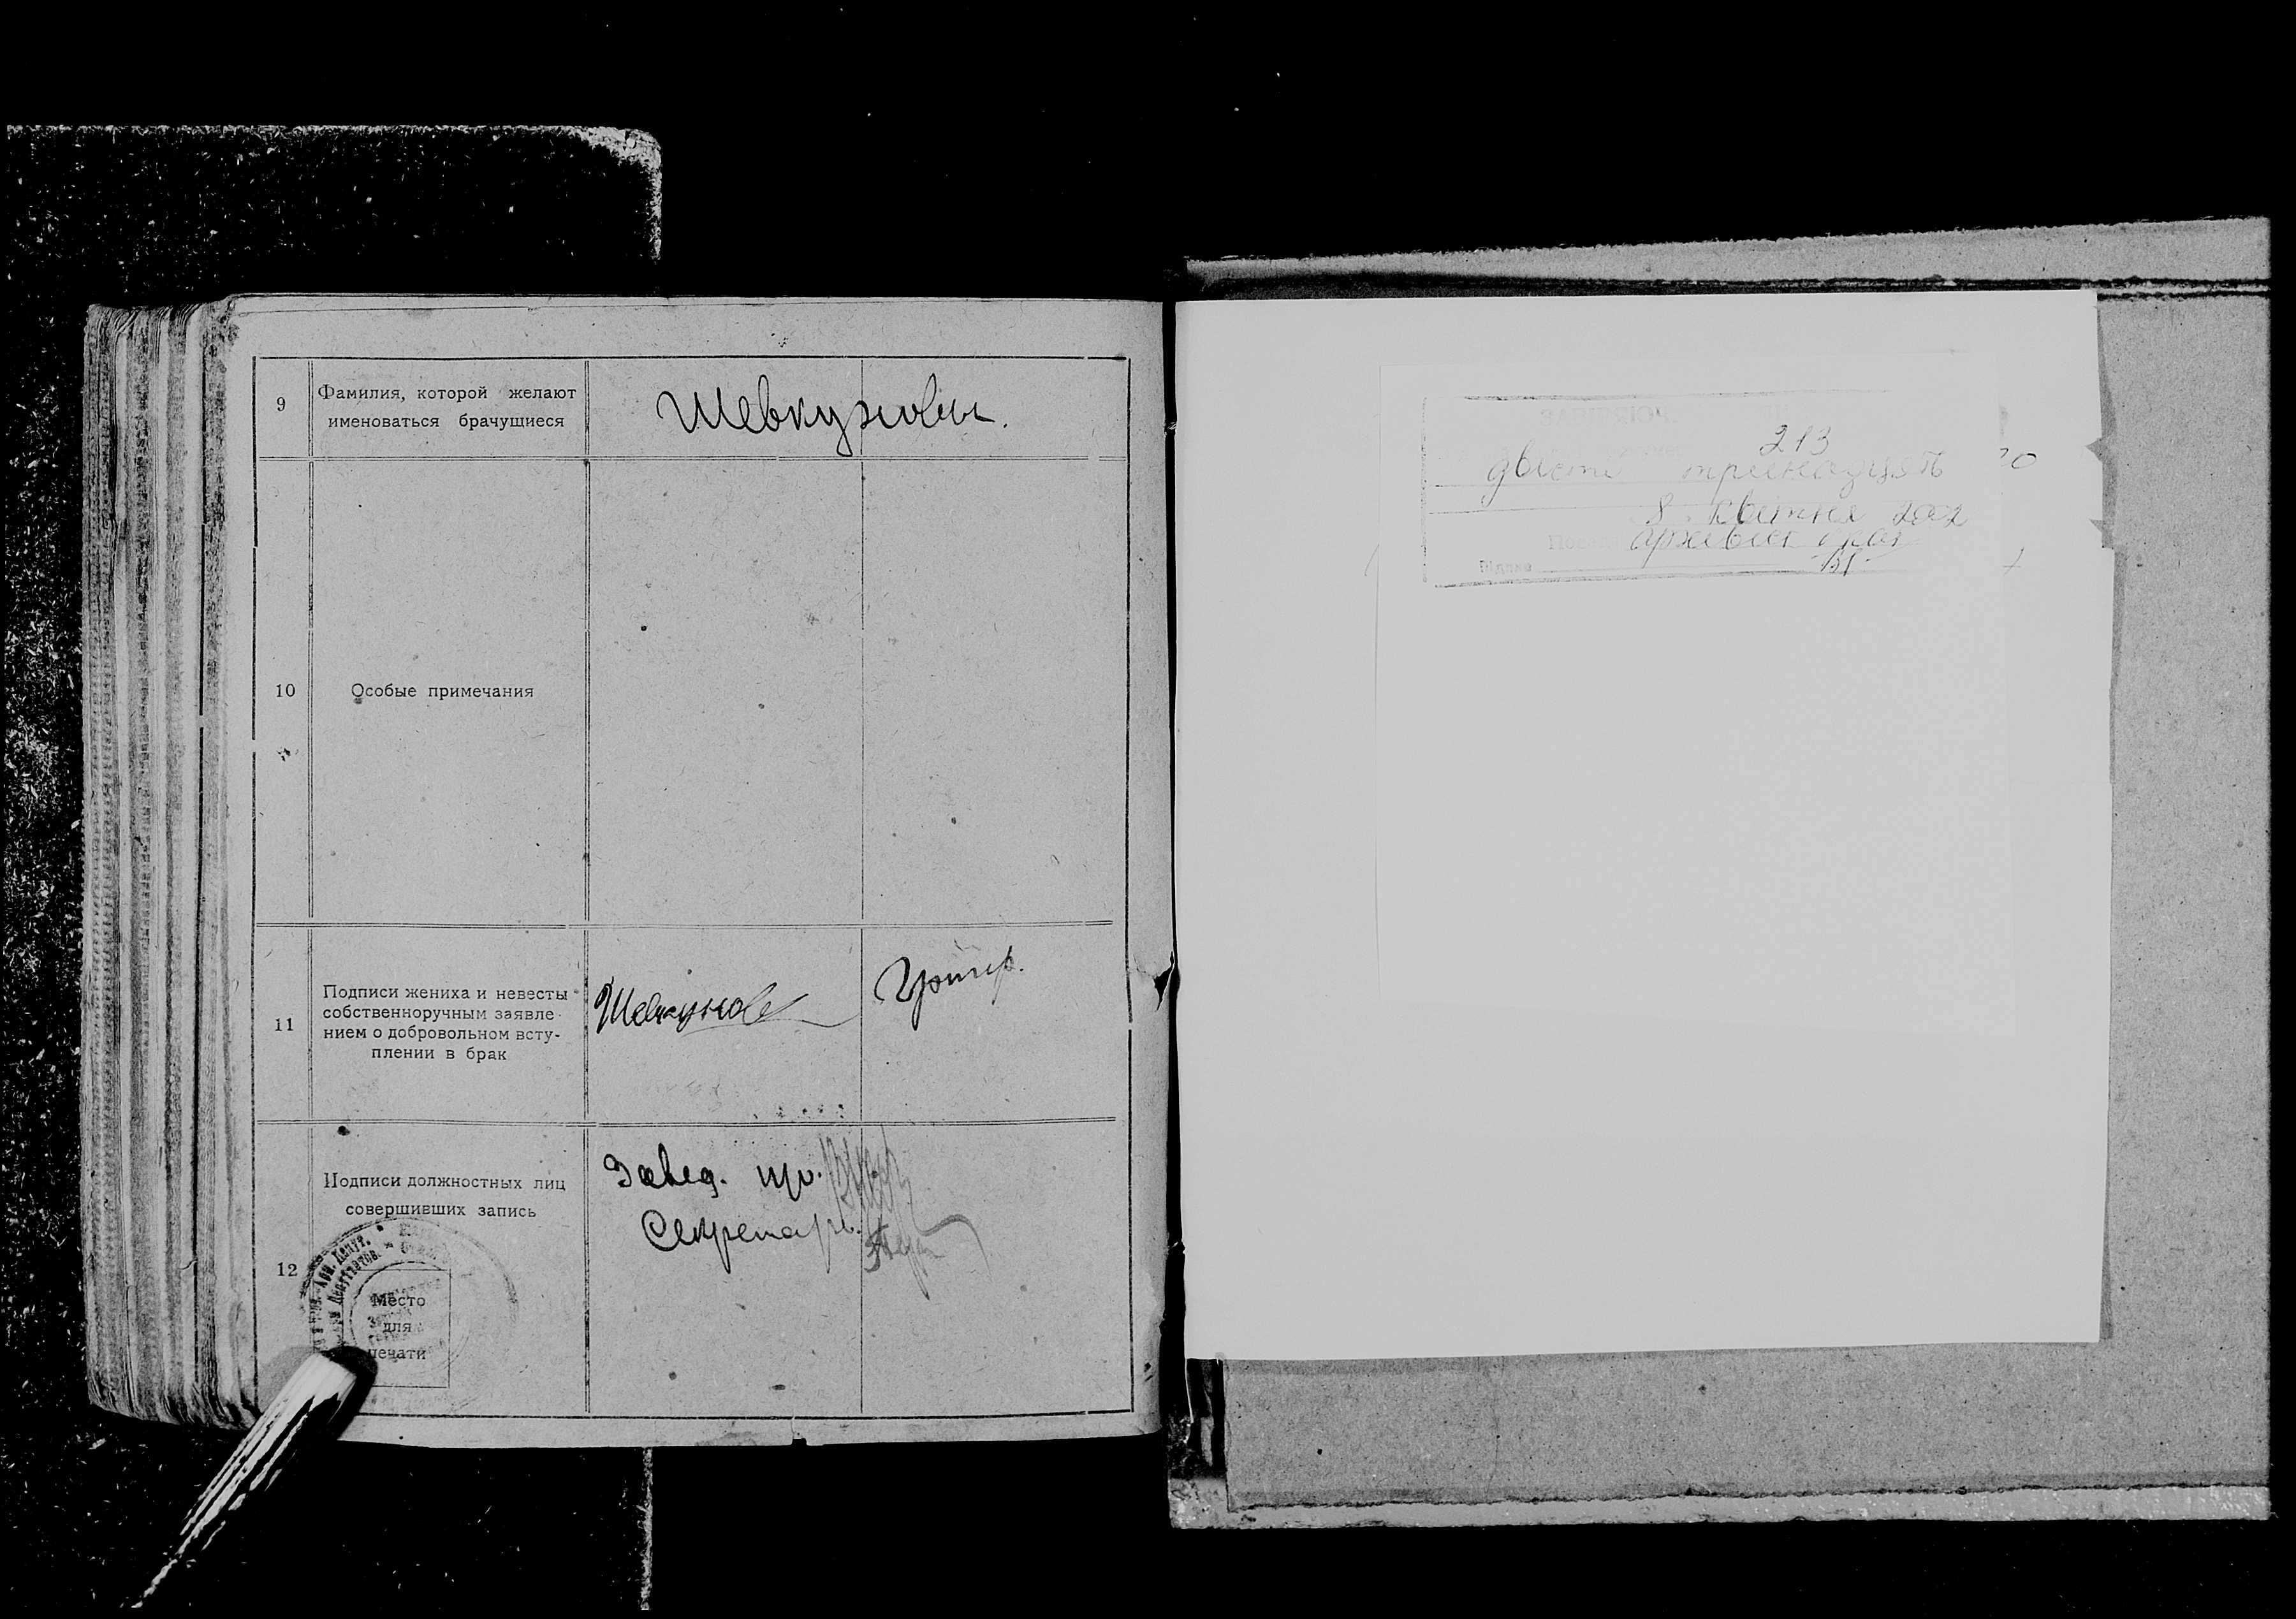 9
Фамилия, которой желают
именоваться брачущиеся
Шевкуновы.
10
Особые примечания
11
Подписи жениха и невесты
собственноручным заявле-
нием о добровольном всту-
плении в брак
Шевкунов
12
Подписи должностных лиц
совершивших запись
Завед.
Секретарь
Место
для
печати
213
двести тринадцять
8 квітня 202